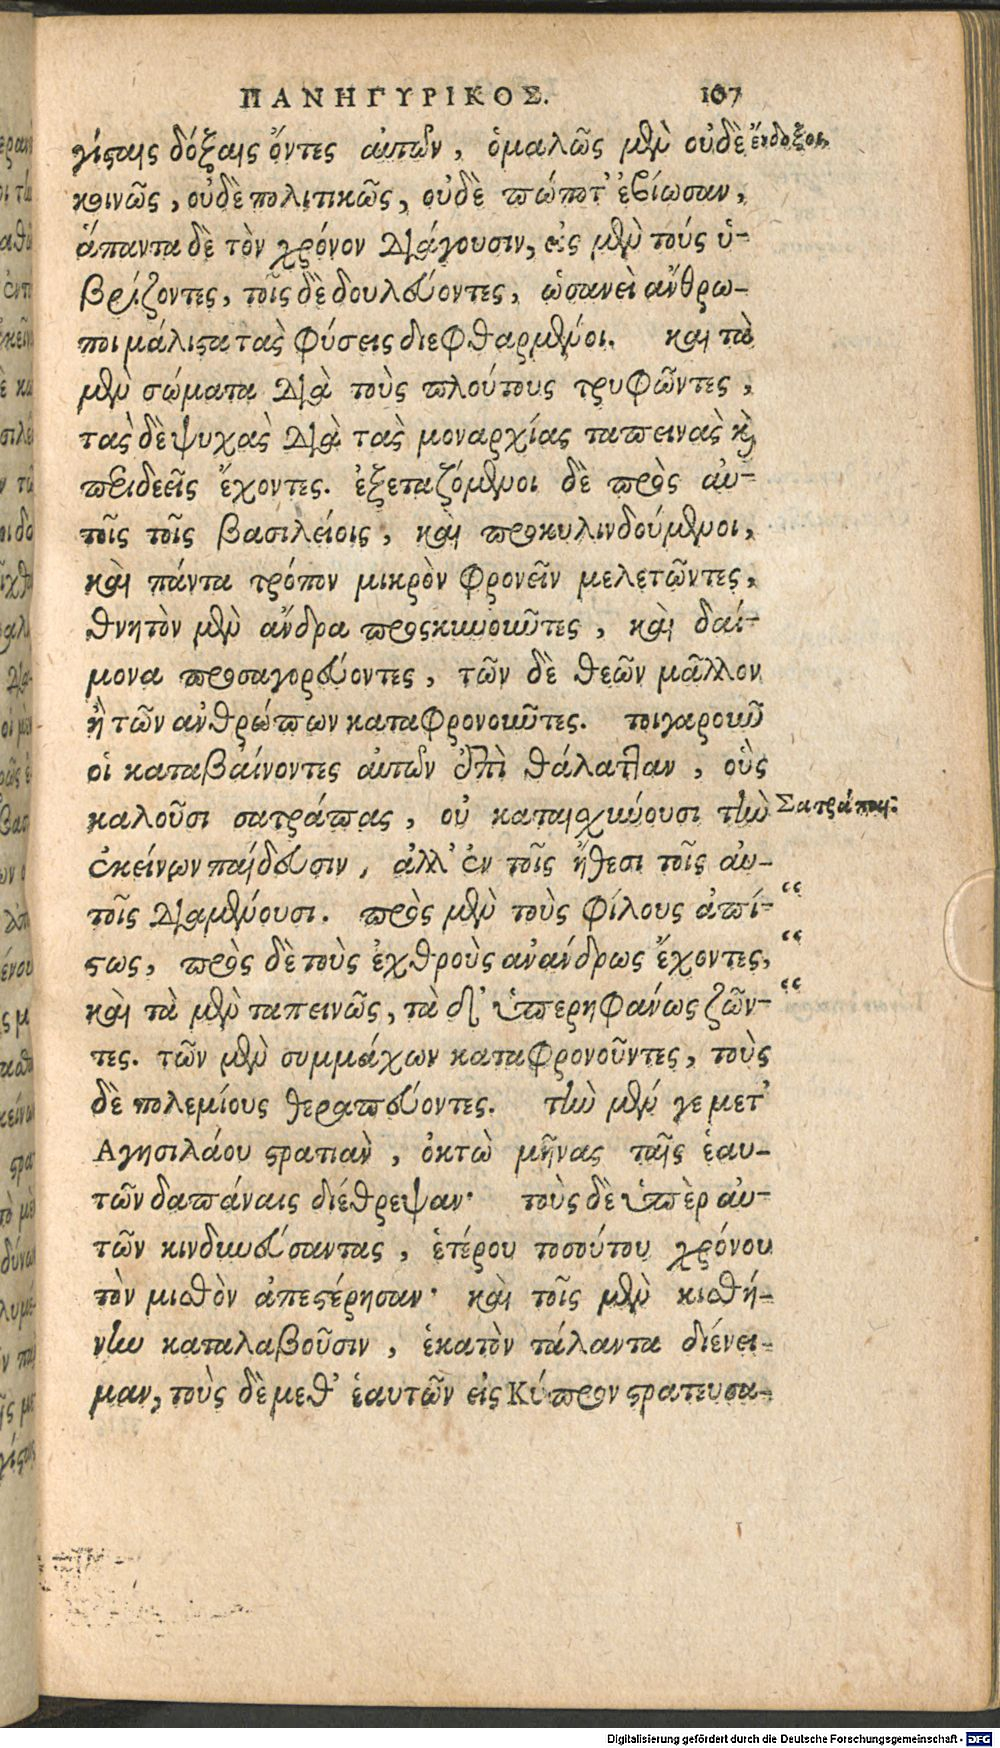 ΠΑΝΗΓΥΡΙΚΟΣ. 107
γίσταις δόξαις ὄντες αὐτῶν, ὁμαλῶς μὲν οὐδὲ ἔνδοξοι.
κοινῶς, οὐδὲ πολιτικῶς, οὐδὲ πώποτ' ἐβίωσαν,
ἅπαντα δὲ τὸν χρόνον διάγουσιν, εἰς μὲν τούς ὑ-
βρίζοντες, τοῖς δὲ δουλεύοντες, ὡσανεὶ ἄνθρω-
ποι μάλιστα τὰς φύσεις διεφθαρμένοι. καὶ τὰ
μὲν σώματα διὰ τοὺς πλούτους τρυφῶντες,
τὰς δὲ ψυχὰς διὰ τὰς μοναρχίας ταπεινὰς καὶ
περιδεεῖς ἔχοντες. ἐξεταζόμενοι δὲ πρὸς αὐ-
τοῖς τοῖς βασιλείοις, καὶ προκυλινδούμενοι,
καὶ πάντα τρόπον μικρὸν φρονεῖν μελετῶντες,
θνητὸν μὲν ἄνδρα προσκυνοῦντες, καὶ δαί-
μονα προσαγορεύοντες, τῶν δὲ θεῶν μᾶλλον
ἢ τῶν ἀνθρώπων καταφρονοῦντες. τοιγαροῦν
οἱ καταβαίνοντες αὐτῶν ἐπὶ θάλατταν, οὓς
καλοῦσι σατράπας, οὐ καταισχύνουσι τὴν Σατράπαι.
ἐκείνων παίδευσιν, ἀλλ' ἐν τοῖς ἤθεσι τοῖς αὐ-
τοῖς διαμένουσι. πρὸς μὲν τοὺς φίλους ἀπί- “
στως, πρὸς δὲ τοὺς ἐχθροὺς ἀνάνδρως ἔχοντες, “
καὶ τὰ μὲν ταπεινῶς, τὰ δ' ὑπερηφάνως ζῶν- “
τες. τῶν μὲν συμμάχων καταφρονοῦντες, τοὺς
δὲ πολεμίους θεραπεύοντες. τὴν μέν γε μετ'
Αγησιλάου στρατιὰν, ὀκτὼ μῆνας ταῖς ἑαυ-
τῶν δαπάναις διέθρεψαν· τοὺς δὲ ὑπὲρ αὐ-
τῶν κινδυνεύσαντας, ἑτέρου τοσούτου χρόνου
τὸν μισθὸν ἀπεστέρησαν· καὶ τοῖς μὲν κισθή-
νην καταλαβοῦσιν, ἑκατὸν τάλαντα διένει-
μαν, τοὺς δὲ μεθ' ἑαυτῶν εἰς Κύπρον στρατευσα-
Digitalisierung gefördert durch die Deutsche Forschungsgemeinschaft - DFG